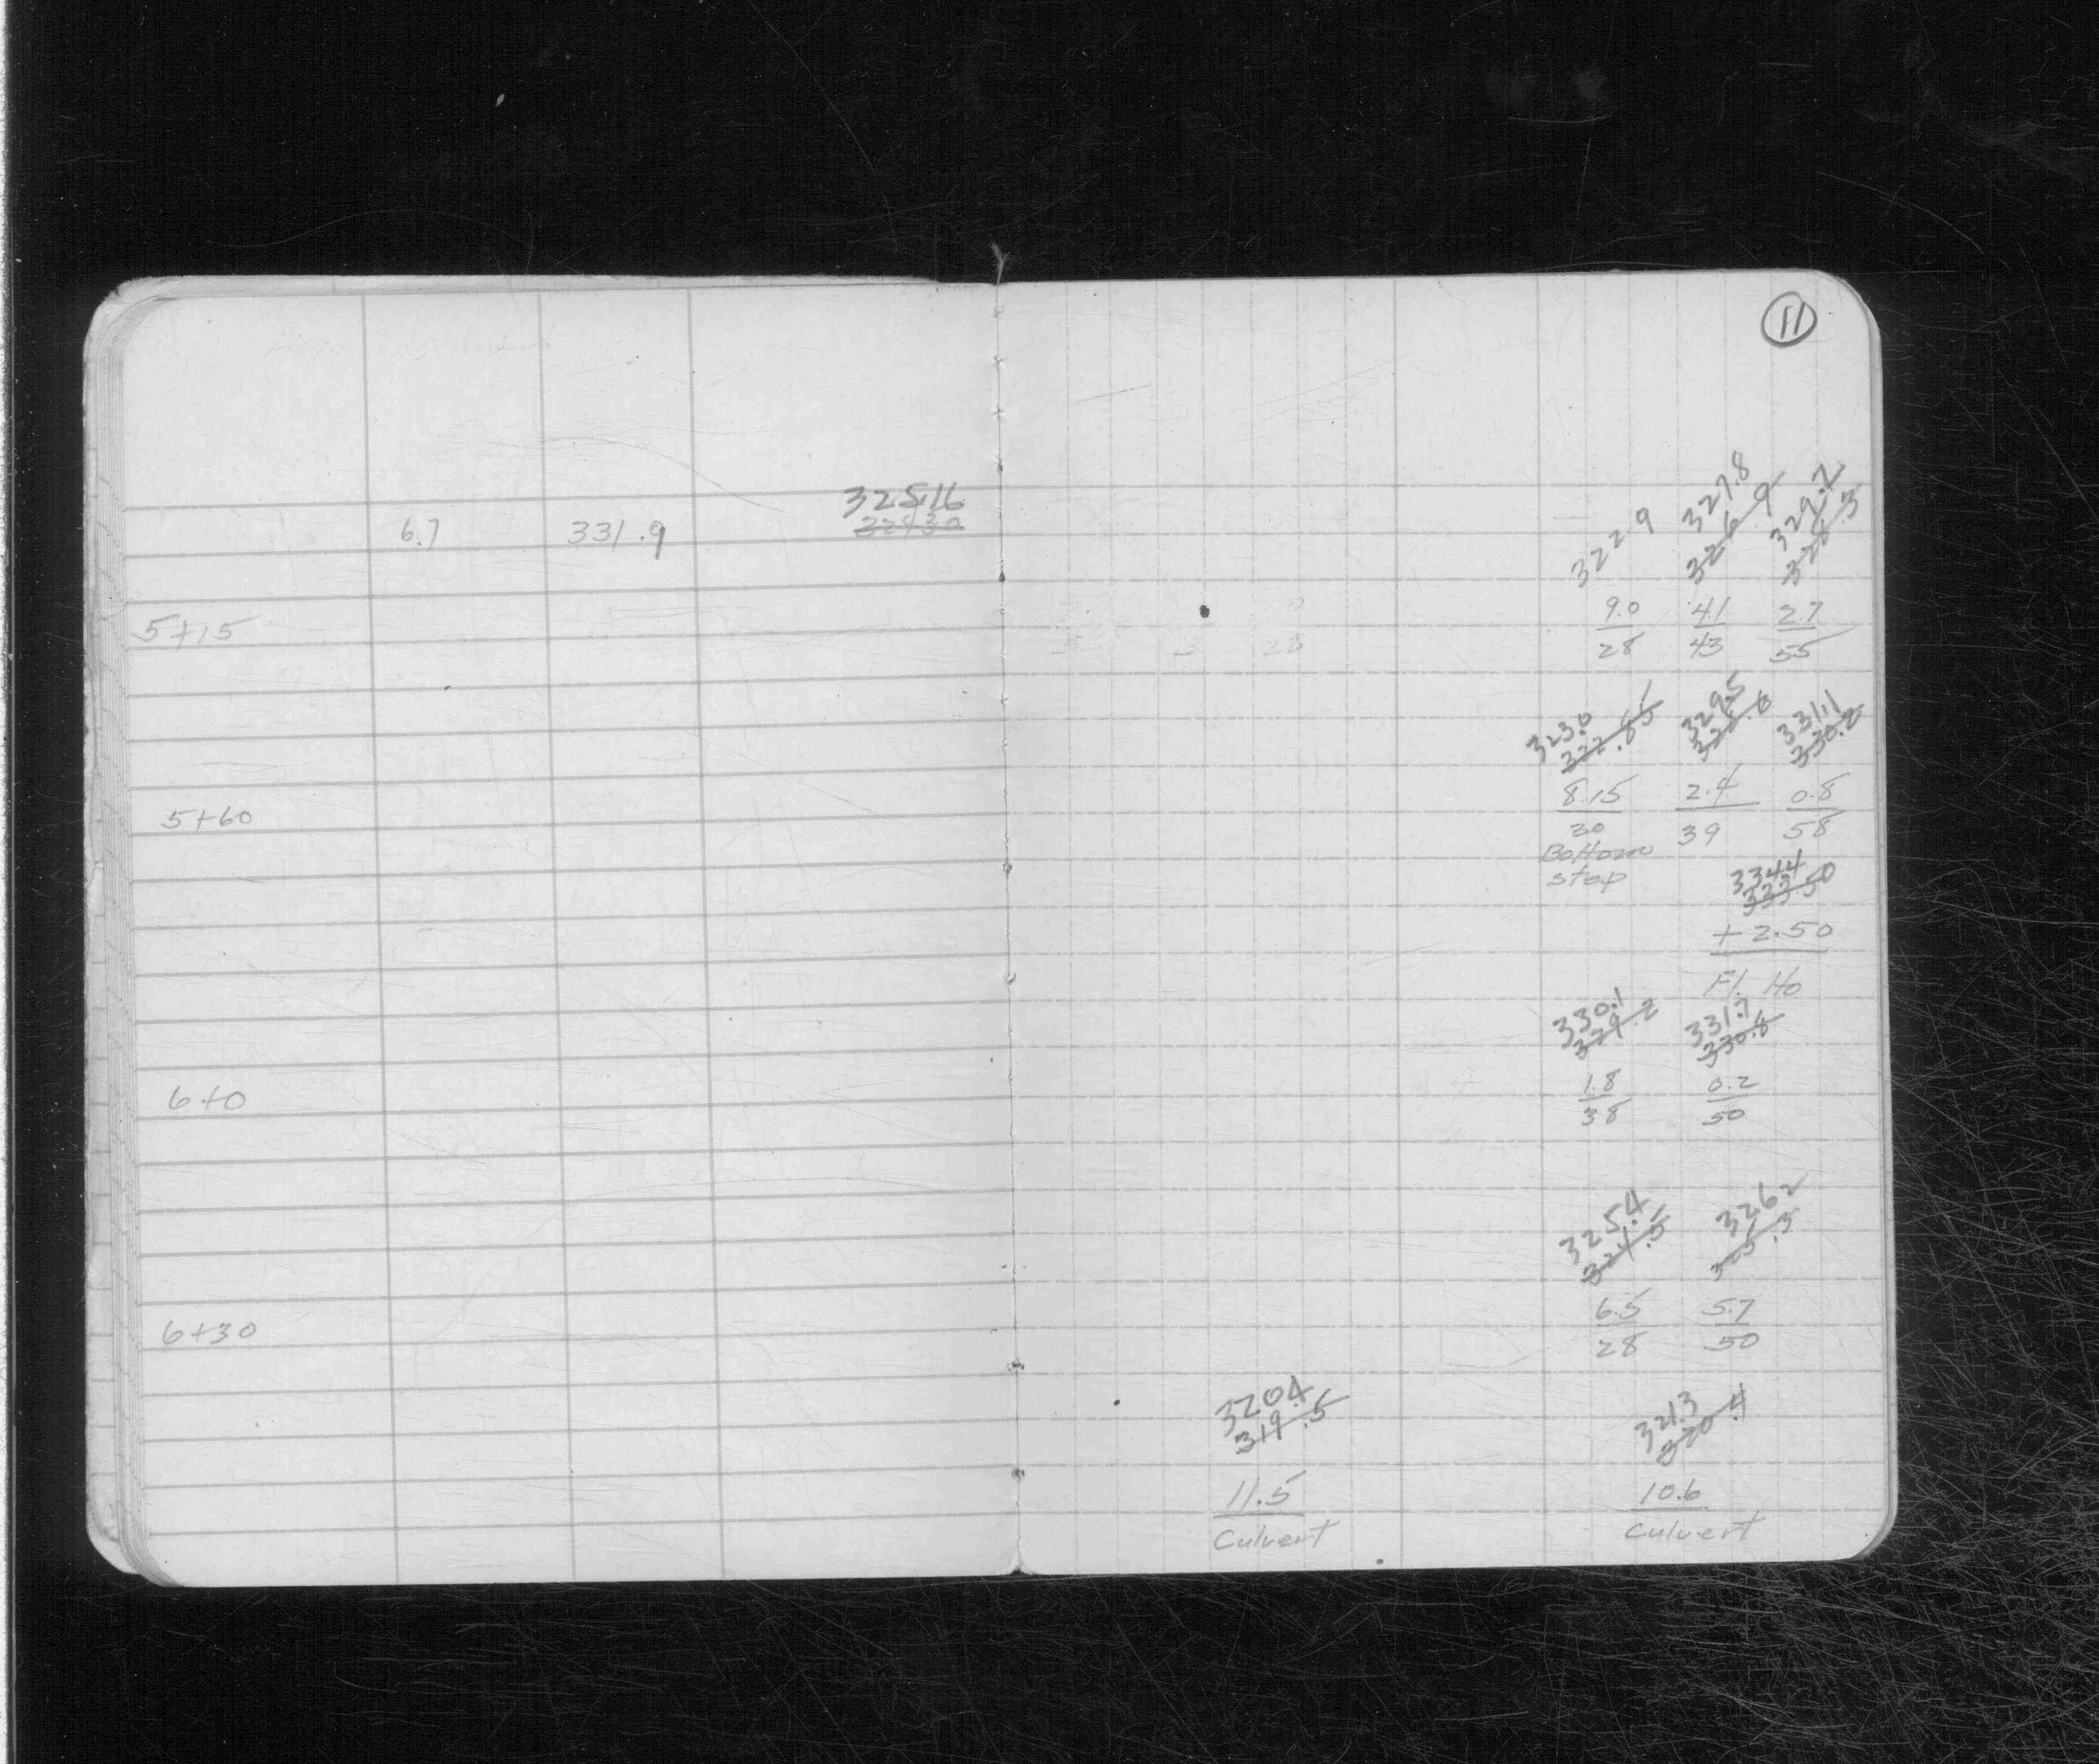 11
325.16
6.7 331.9 324.30
322 9 327.8 329.2
326 9 328.3
5+15 9.0 4.1 2.7
28 43 55
323.0 329.5 331.1
322.85 328.6 330.2
5+60 8.15 2.4 0.8
30 39 58
Bottom
step
334.4
333.50
+2.50
Fl. Ho
330.1 331.7
329.2 330.8
6+0 1.8 0.2
38 50
325.4 326 2
324.5 325.3
6+30 6.5 5.7
28 50
320.4 321.3
319.5 320.4
11.5 10.6
Culvert Culvert